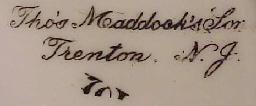 Tho's Maddock's Son
Trenton. N. J.